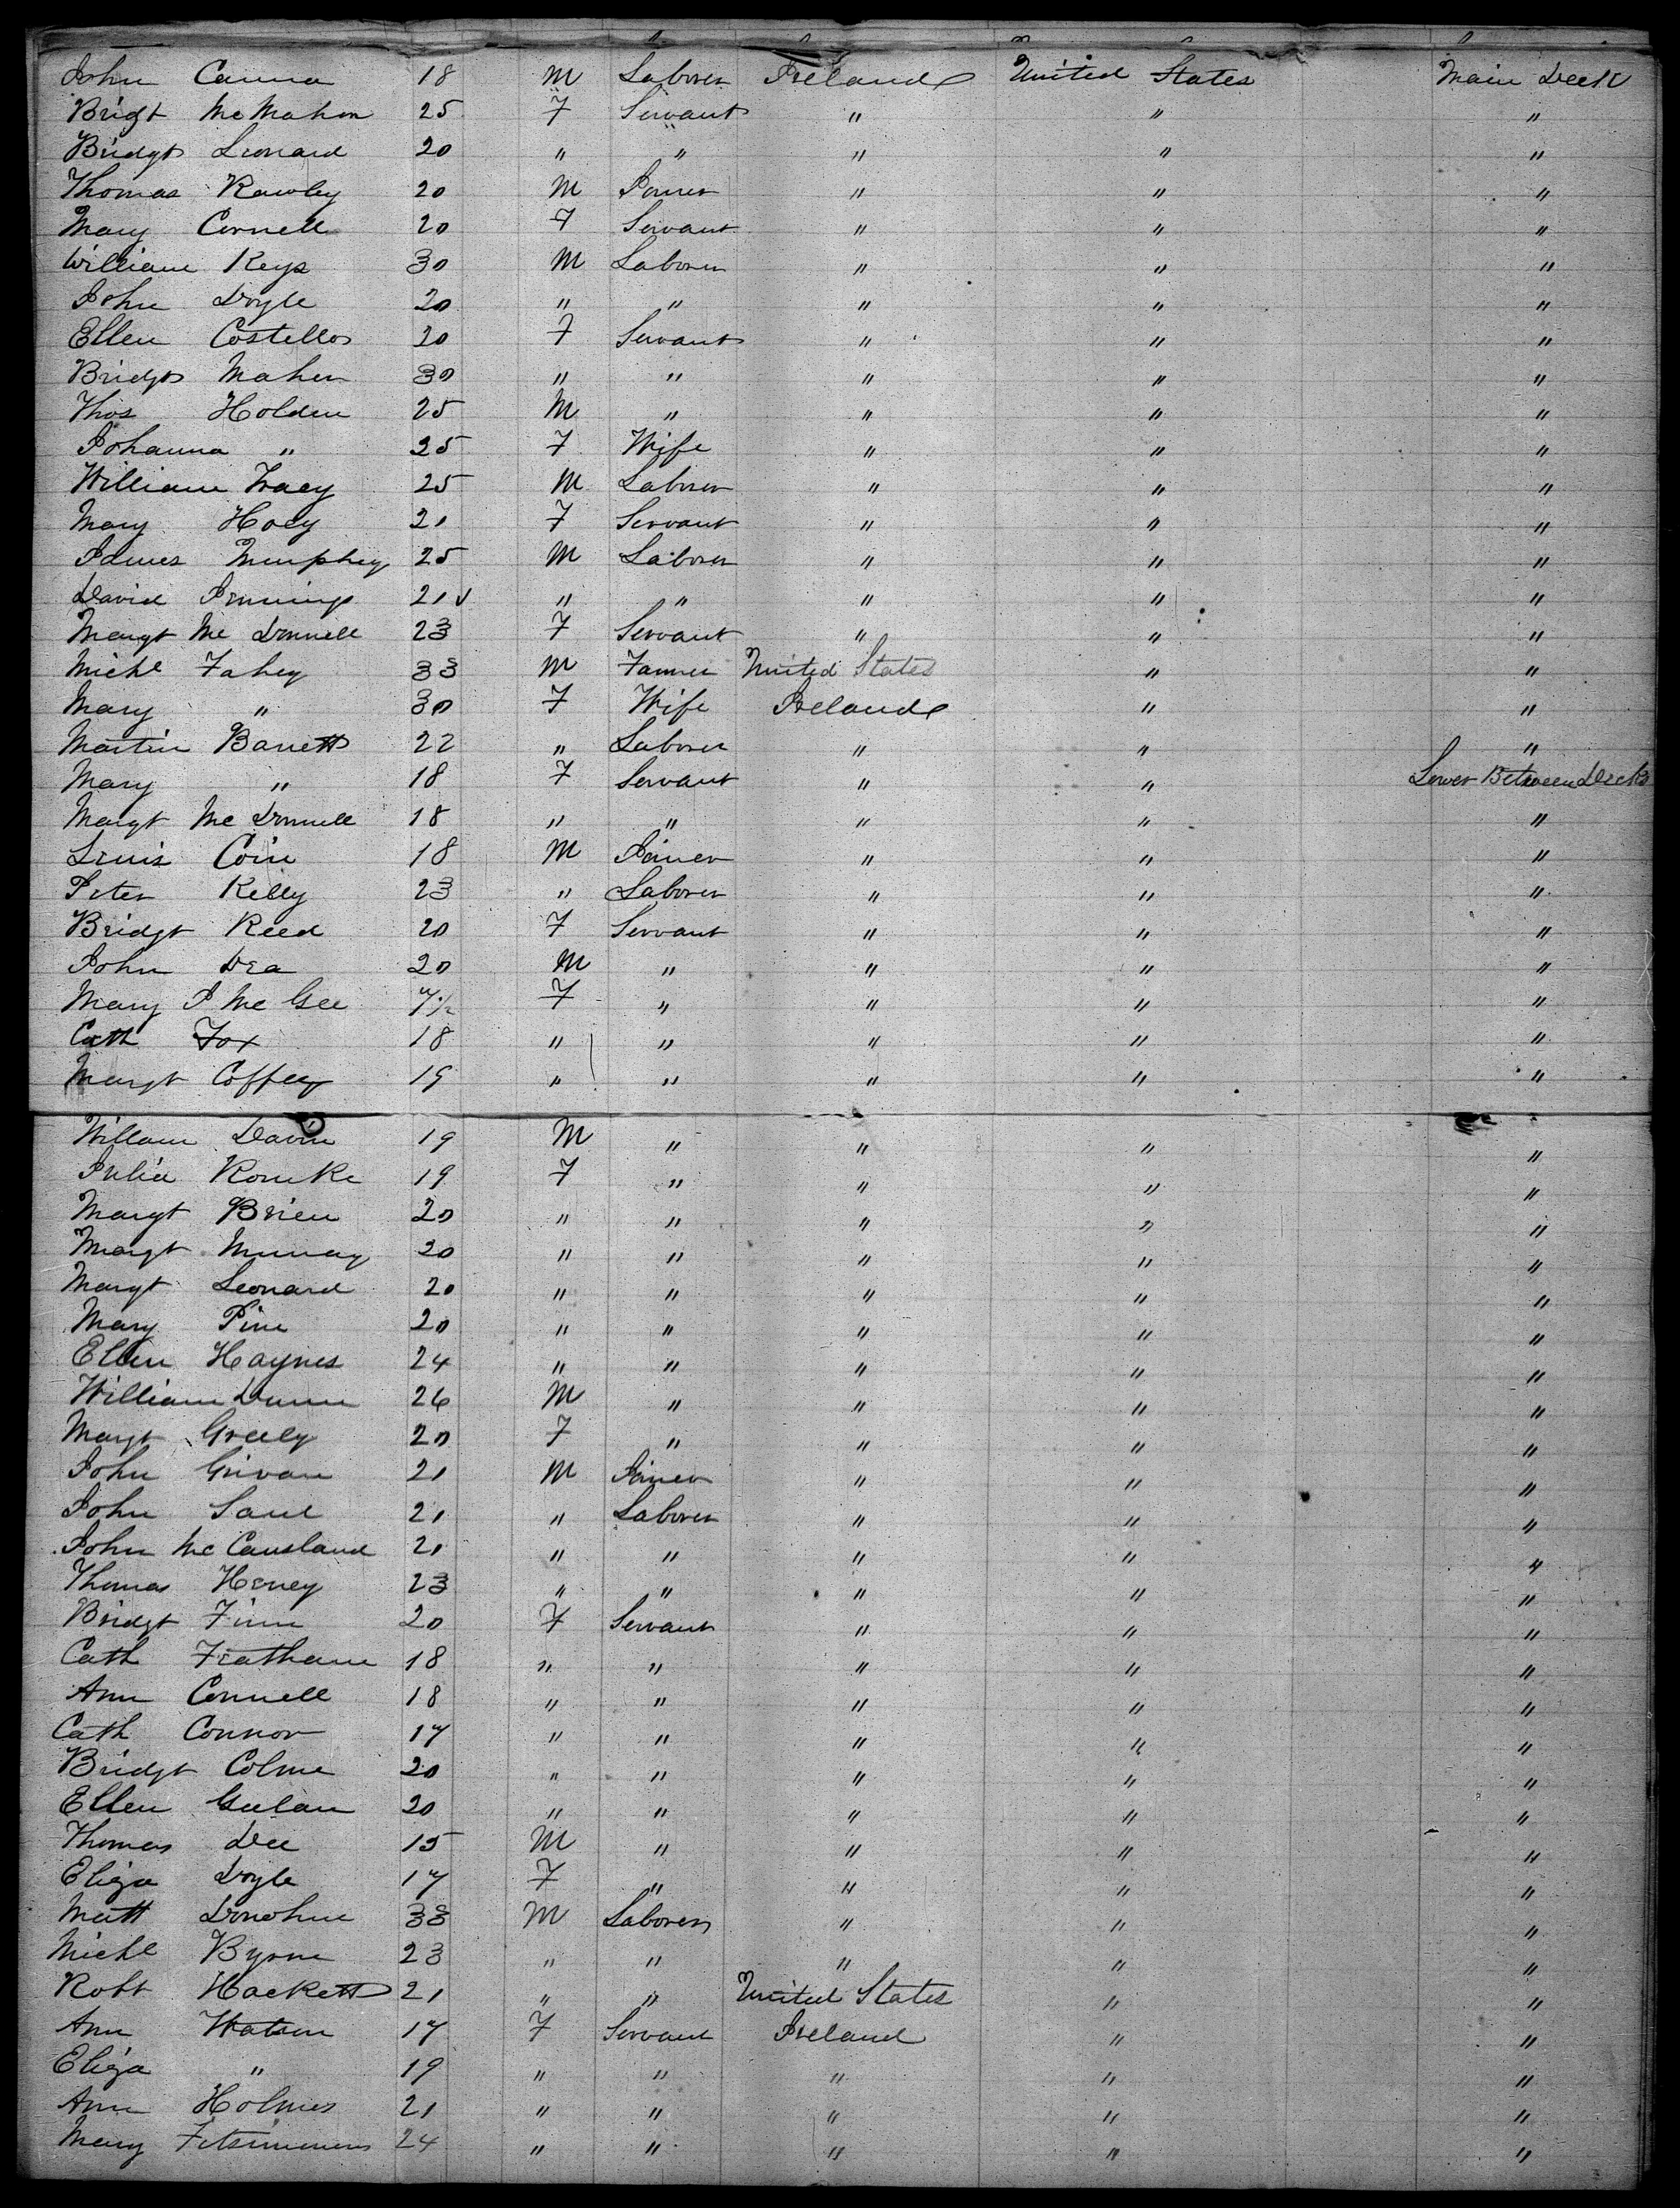 John Canna 18 M Laborer Ireland United States Main Deck
Bridgt McMahon 25 F Servant " " "
Bridgt Leonard 20 " " " " "
Thomas Rowley 20 M Joiner " " "
Mary Connell 20 F Servant " " "
William Keys 30 M Laborer " " "
John Doyle 20 " " " " "
Ellen Costello 20 F Servant " " "
Bridgt Maher 30 " " " " "
Thos Holden 25 M " " " "
Johanna " 25 F Wife " " "
William Tracy 25 M Laborer " " "
Mary Hoey 21 F Servant " " "
James Murphey 25 M Laborer " " "
David Jennings 21 " " " " "
Margt McDonnell 23 F Servant " " "
Michl Fahey 33 M Farmer United States " "
Mary " 30 F Wife Ireland " "
Martin Barrett 22 " Laborer " " "
Mary " 18 F Servant " " Lower Between Decks
Margt McDonnell 18 " " " " "
Louis Coin 18 M Joiner " " "
Peter Kelly 23 " Laborer " " "
Bridgt Reed 20 F Servant " " "
John Dea 20 M " " " "
Mary J McGee 7½ F " " " "
Cath Fox 18 " " " " "
Margt Coffey 19 " " " " "
William Davin 19 M " " " "
Julia Rourke 19 F " " " "
Margt Brien 20 " " " " "
Margt Murray 20 " " " " "
Margt Leonard 20 " " " " "
Mary Pine 20 " " " " "
Ellen Haynes 24 " " " " "
William Dunn 26 M " " " "
Margt Greely 20 F " " " "
John Grivan 21 M Joiner " " "
John Saul 21 " Laborer " " "
John McCausland 21 " " " " "
Thomas Heney 23 " " " " "
Bridgt Finn 20 F Servant " " "
Cath 18 " " " " "
Ann Connell 18 " " " " "
Cath Connor 17 " " " " "
Bridgt Colme 20 " " " " "
Ellen Geelan 20 " " " " "
Thomas Dee 15 M " " " "
Eliza Doyle 17 F " " " "
Matt Donohue 33 M Laborer " " "
Michl Byrne 23 " " " " "
Robt Hackett 21 " " United States " "
Ann Watson 17 F Servant Ireland " "
Eliza " 19 " " " " "
Ann Holmes 21 " " " " "
Mary Fitsimmons 24 " " " " "